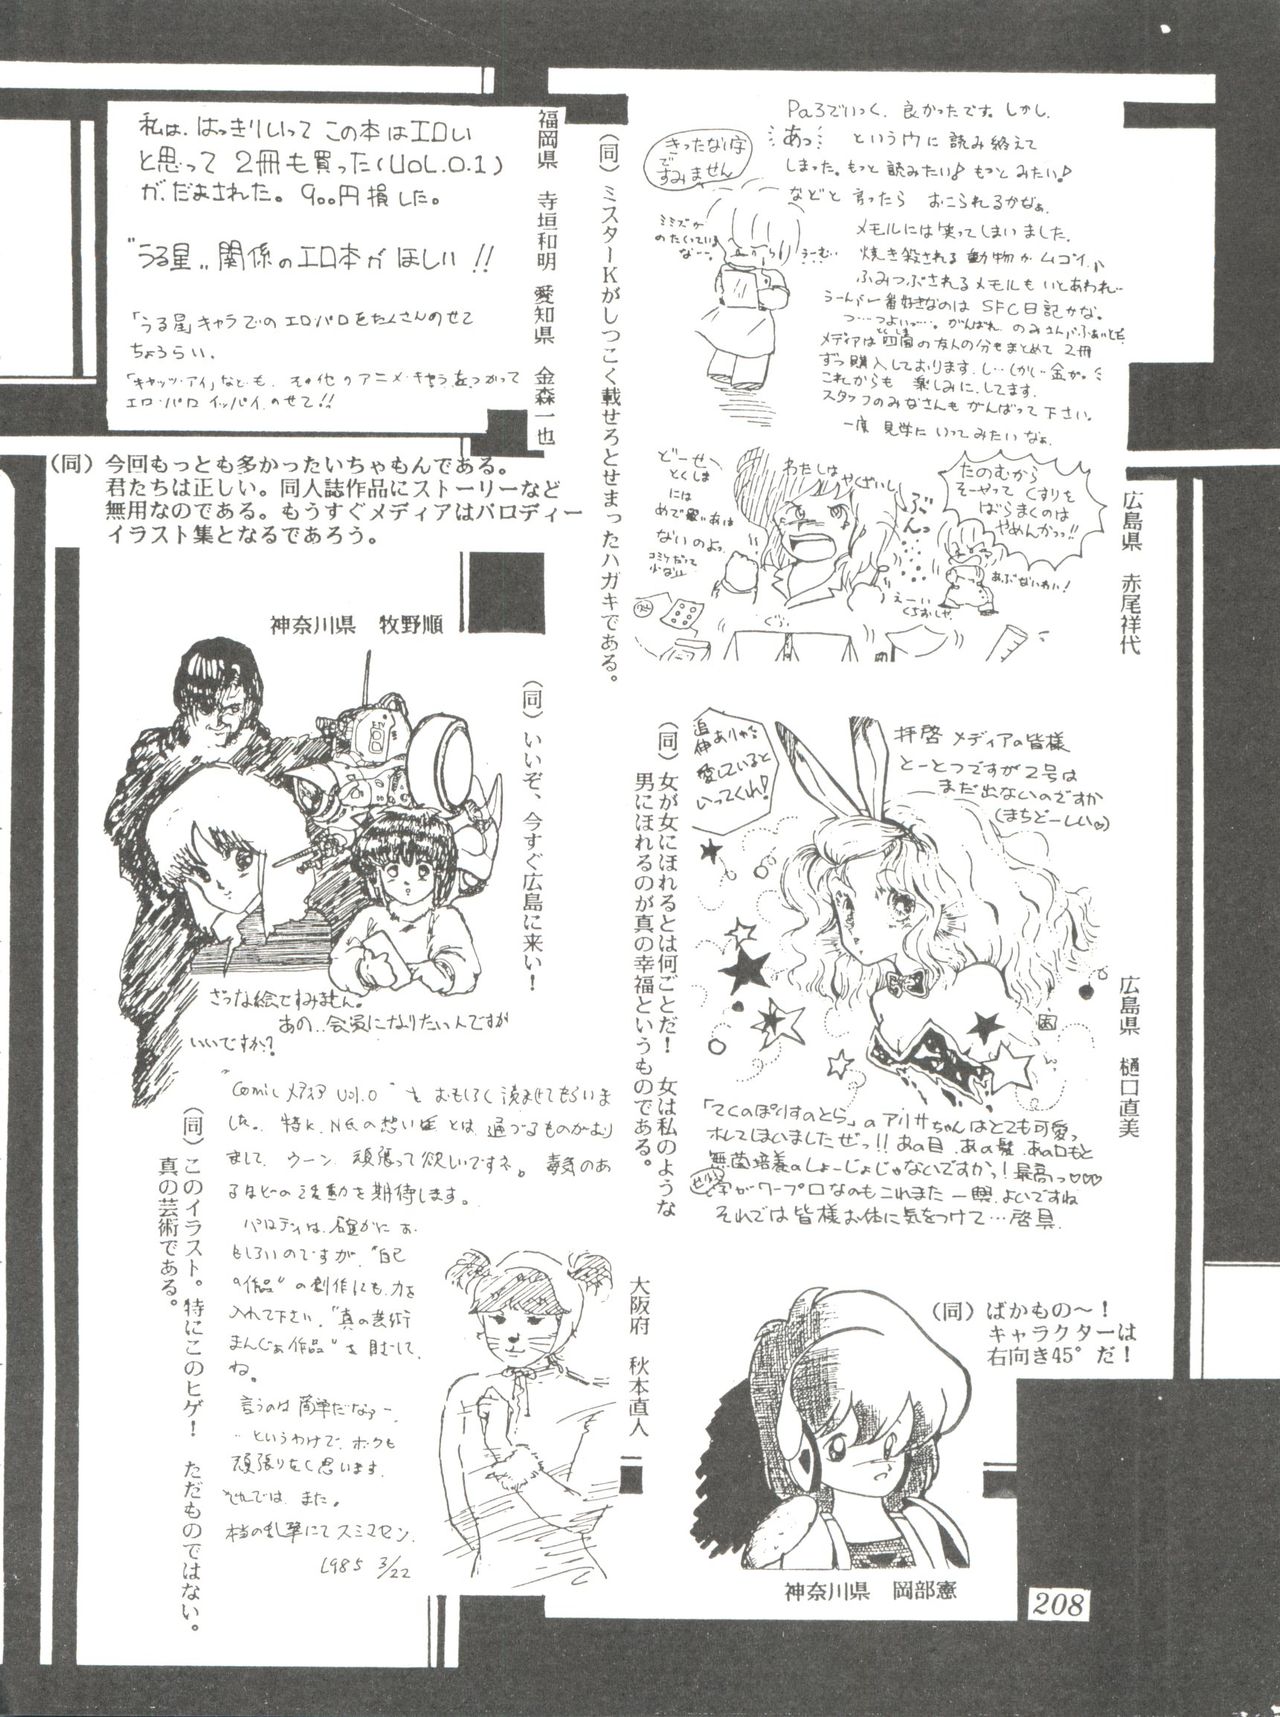 Pa3でいっく、良かったです。しかし、
あっ というウに読み終えて
しまった。もっと読みたい♪もっとみたい♪
などと言ったら おこられるかなぁ。
メモルには笑ってしまいました。
焼き殺される動物がムゴイ。
ふみつぶされるメモルもいとあわれ…
うーんが一番好きなのは SFC日記かな。
つ…つよいっ…。がんばれ のみさん、ふぁいとだ
メディアは四国の友人の分もまとめて2冊
ずつ購入しております。し、くくしい金が。
これからも楽しみにしてます。
スタッフのみなさんもがんばって下さい。
一度 見学にいってみたいなぁ。
きったない字
で
すみません
ミミズが
のたくっている
なー。
うーむ…
どーせ
とくしま
には
めで買い
ないのよっ
コミケだって
少ないし
わたしは
やくざいし
ぶんっ
たのむから
そーやって くすりを
ばらまくのは
やめんかっっ!!
あぶないわい!
えーい
くちおしや
広島県 赤尾祥代
(同)ミスターKがしつこく載せろとせまったハガキである。
私は、はっきりいって この本はエロい
と思って 2冊も買った(VOL.0.1)
が、だまされた。900円損した。
"うる星„ 関係のエロ本がほしい!!
「うる星」キャラでのエロ・パロをたくさんのせて
ちょうらい。
「キャッツ・アイ」なども、その他のアニメ・キャラをつかって
エロ・パロ イッパイ のせて!!
福岡県 寺垣和明
愛知県 金森一也
(同)今回もっとも多かったいちゃもんである。
君たちは正しい。同人誌作品にストーリーなど
無用なのである。もうすぐメディアはパロディー
イラスト集となるであろう。
拝啓 メディアの皆様
とーとつですが2号は
まだ出ないのですか
(まちどーしい♡)
追伸
愛していると
いってくれ!
「てくのぽりすのとら」のアリサちゃんはとても可愛っ
ホレてしまいましたぜっ!!あの目、あの髪、あの口もと
無菌培養のしょーじょじゃないですかっ!最高っ♡♡♡
字がワープロなのもこれまた一興、よいですね
それでは皆様お体に気をつけて…啓具
広島県 樋口直美
(同)女が女にほれるとは何ごとだ! 女は私のような
男にほれるのが真の幸福というものである。
神奈川県 牧野順
ざつな絵ですみません。
あの…会員になりたいんですが
いいですか?
(同)いいぞ、今すぐ広島に来い!
"Comic メディア Vol.0"をおもしろく読ませてもらいま
した。特K、N氏の想い は、通づるものがあり
まして、ウーン、頑張って欲しいですネ。毒気のあ
るほどの活動を期待します。
パロディは、確かにお
もしろいのですが、"自己
の作品"の創作にも力を
入れて下さい。"真の芸術
まんがぁ作品"を目ざして
ね。
言うのは簡単だなァー、
…というわけで、ボクも
頑張りたく思います。
それでは、また。
本当の乱筆にてスミマセン。
1985 3/22
大阪府 秋本直人
(同)このイラスト。特にこのヒゲ! ただものではない。
真の芸術である。
(同)ばかもの〜!
キャラクターは
右向き45°だ!
神奈川県 岡部憲
208